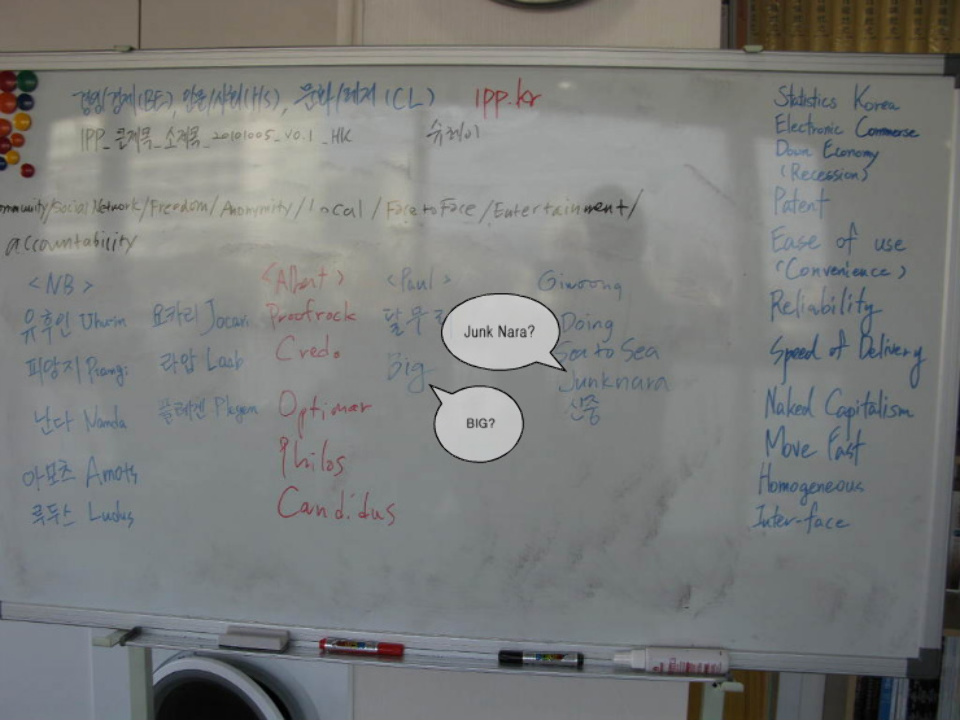 경영/경제(BE), 인문/사회(HS), 문화/레저(CL) IPP.kr
IPP_큰제목_소제목_20101005_v0.1_HK 슈레이
mmunity/Social Network/Freedom/Anonymity/Local/Face to Face/Entertainment/
accountability
<NB>
유후인 Uhuin
피망지
난다 Nanda
아모츠 Amots
루두스 Ludus
요카리 Jocari
라압 Laab
플레젠
<Albert>
Proofrock
Credo
Optimar
Philos
Candidus
<Paul>
달무
Big
Giwoong
Doing
Sea to Sea
Junknara
신중
Junk Nara?
BIG?
Statistics Korea
Electronic Commerse
Down Economy
(Recession)
Patent
Ease of use
(Convenience)
Reliability
Speed of Delivery
Naked Capitalism
Move Fast
Homogeneous
Inter-face